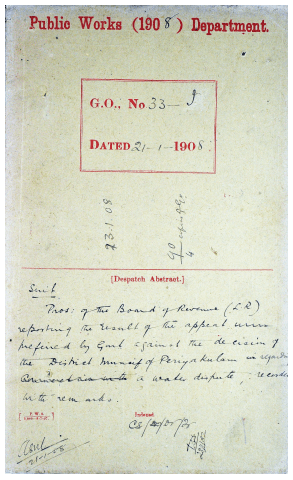 Public Works (1908) Department.
G.O., No. 33-I
DATED 21-1-1908
23.1.08
[Despatch Abstract.]
Suit
Pros: of the Board of Revenue (L.R)
reporting the result of the appeal
preferred by Govt against the decision of
the District Munsif of Periyakulam in regard
a water dispute, recorded
with remarks.
Indexed